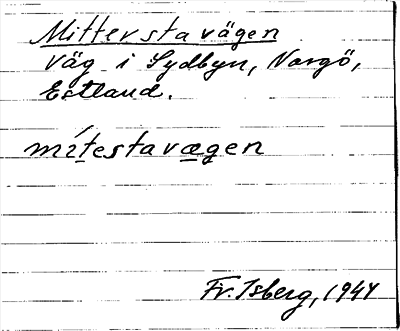 Mittersta vägen
Väg i Sydbyn, Nargö,
Estland.
mítestavægen
Fr. Isberg, 1941